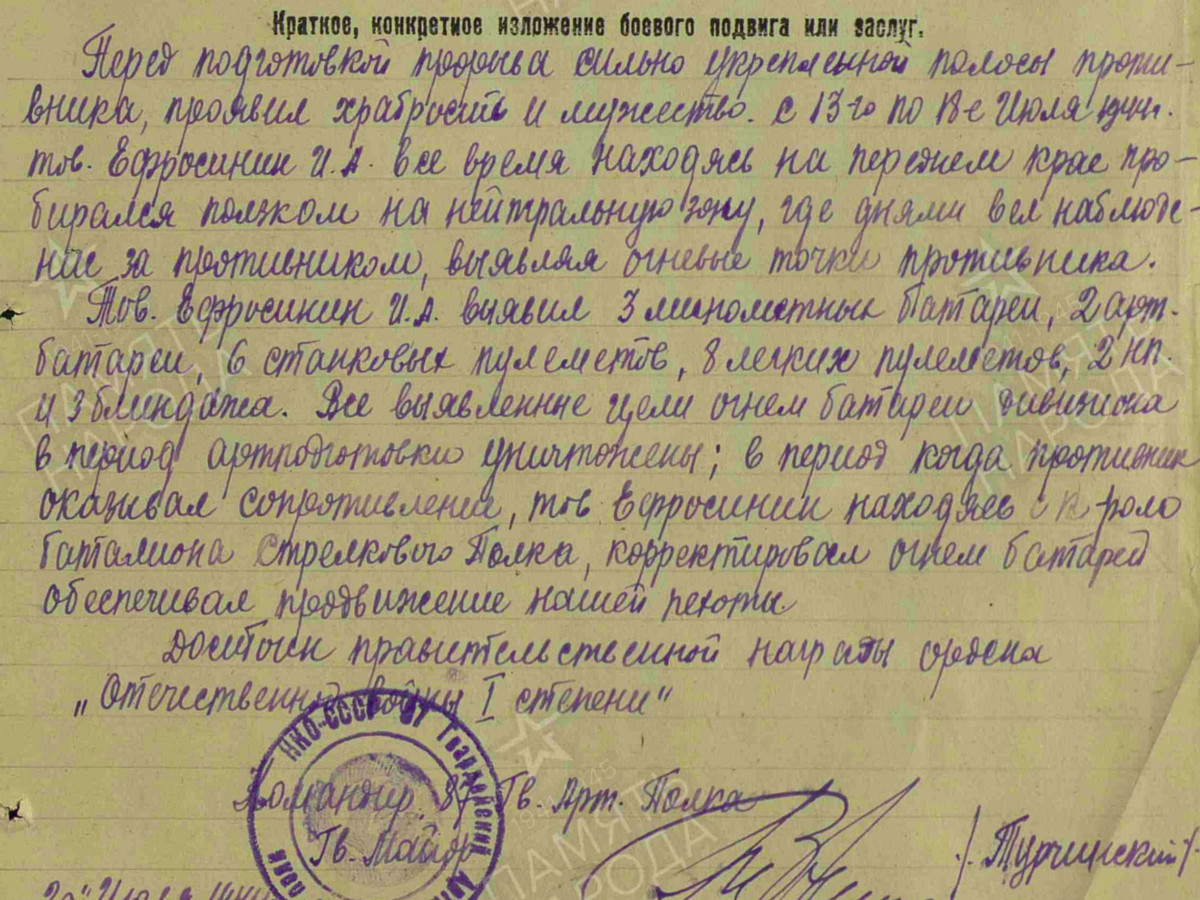 Краткое, конкретное изложение боевого подвига или заслуг.
Перед подготовкой прорыва сильно укрепленной полосы проти-
вника, проявил храбрость и мужество. с 13-го по 18-е Июля
тов. Ефросинин И.А. все время находясь на переднем крае про-
бирался ползком на нейтральную зону, где днями вел наблюде-
ние за противником, выявляя огневые точки противника.
Тов. Ефросинин И.А. выявил 3 минометных батареи, 2 арт.
батареи, 6 станковых пулеметов, 8 легких пулеметов, 2 нп.
и 3 блиндажа. Все выявленные цели огнем батареи дивизиона
в период артподготовки уничтожены; в период когда противник
оказывал сопротивление, тов Ефросинин находясь с
баталиона Стрелкового Полка, корректировал огнем батарей
обеспечивал продвижение нашей пехоты.
Достоин правительственной награды ордена
„Отечественной войны I степени"
НКО-СССР 87 Гвардейский
Командир 87 Гв. Арт. Полка
Гв. Майор
/Турчинский/
Июля
ПАМЯТЬ НАРОДА
1941 1945